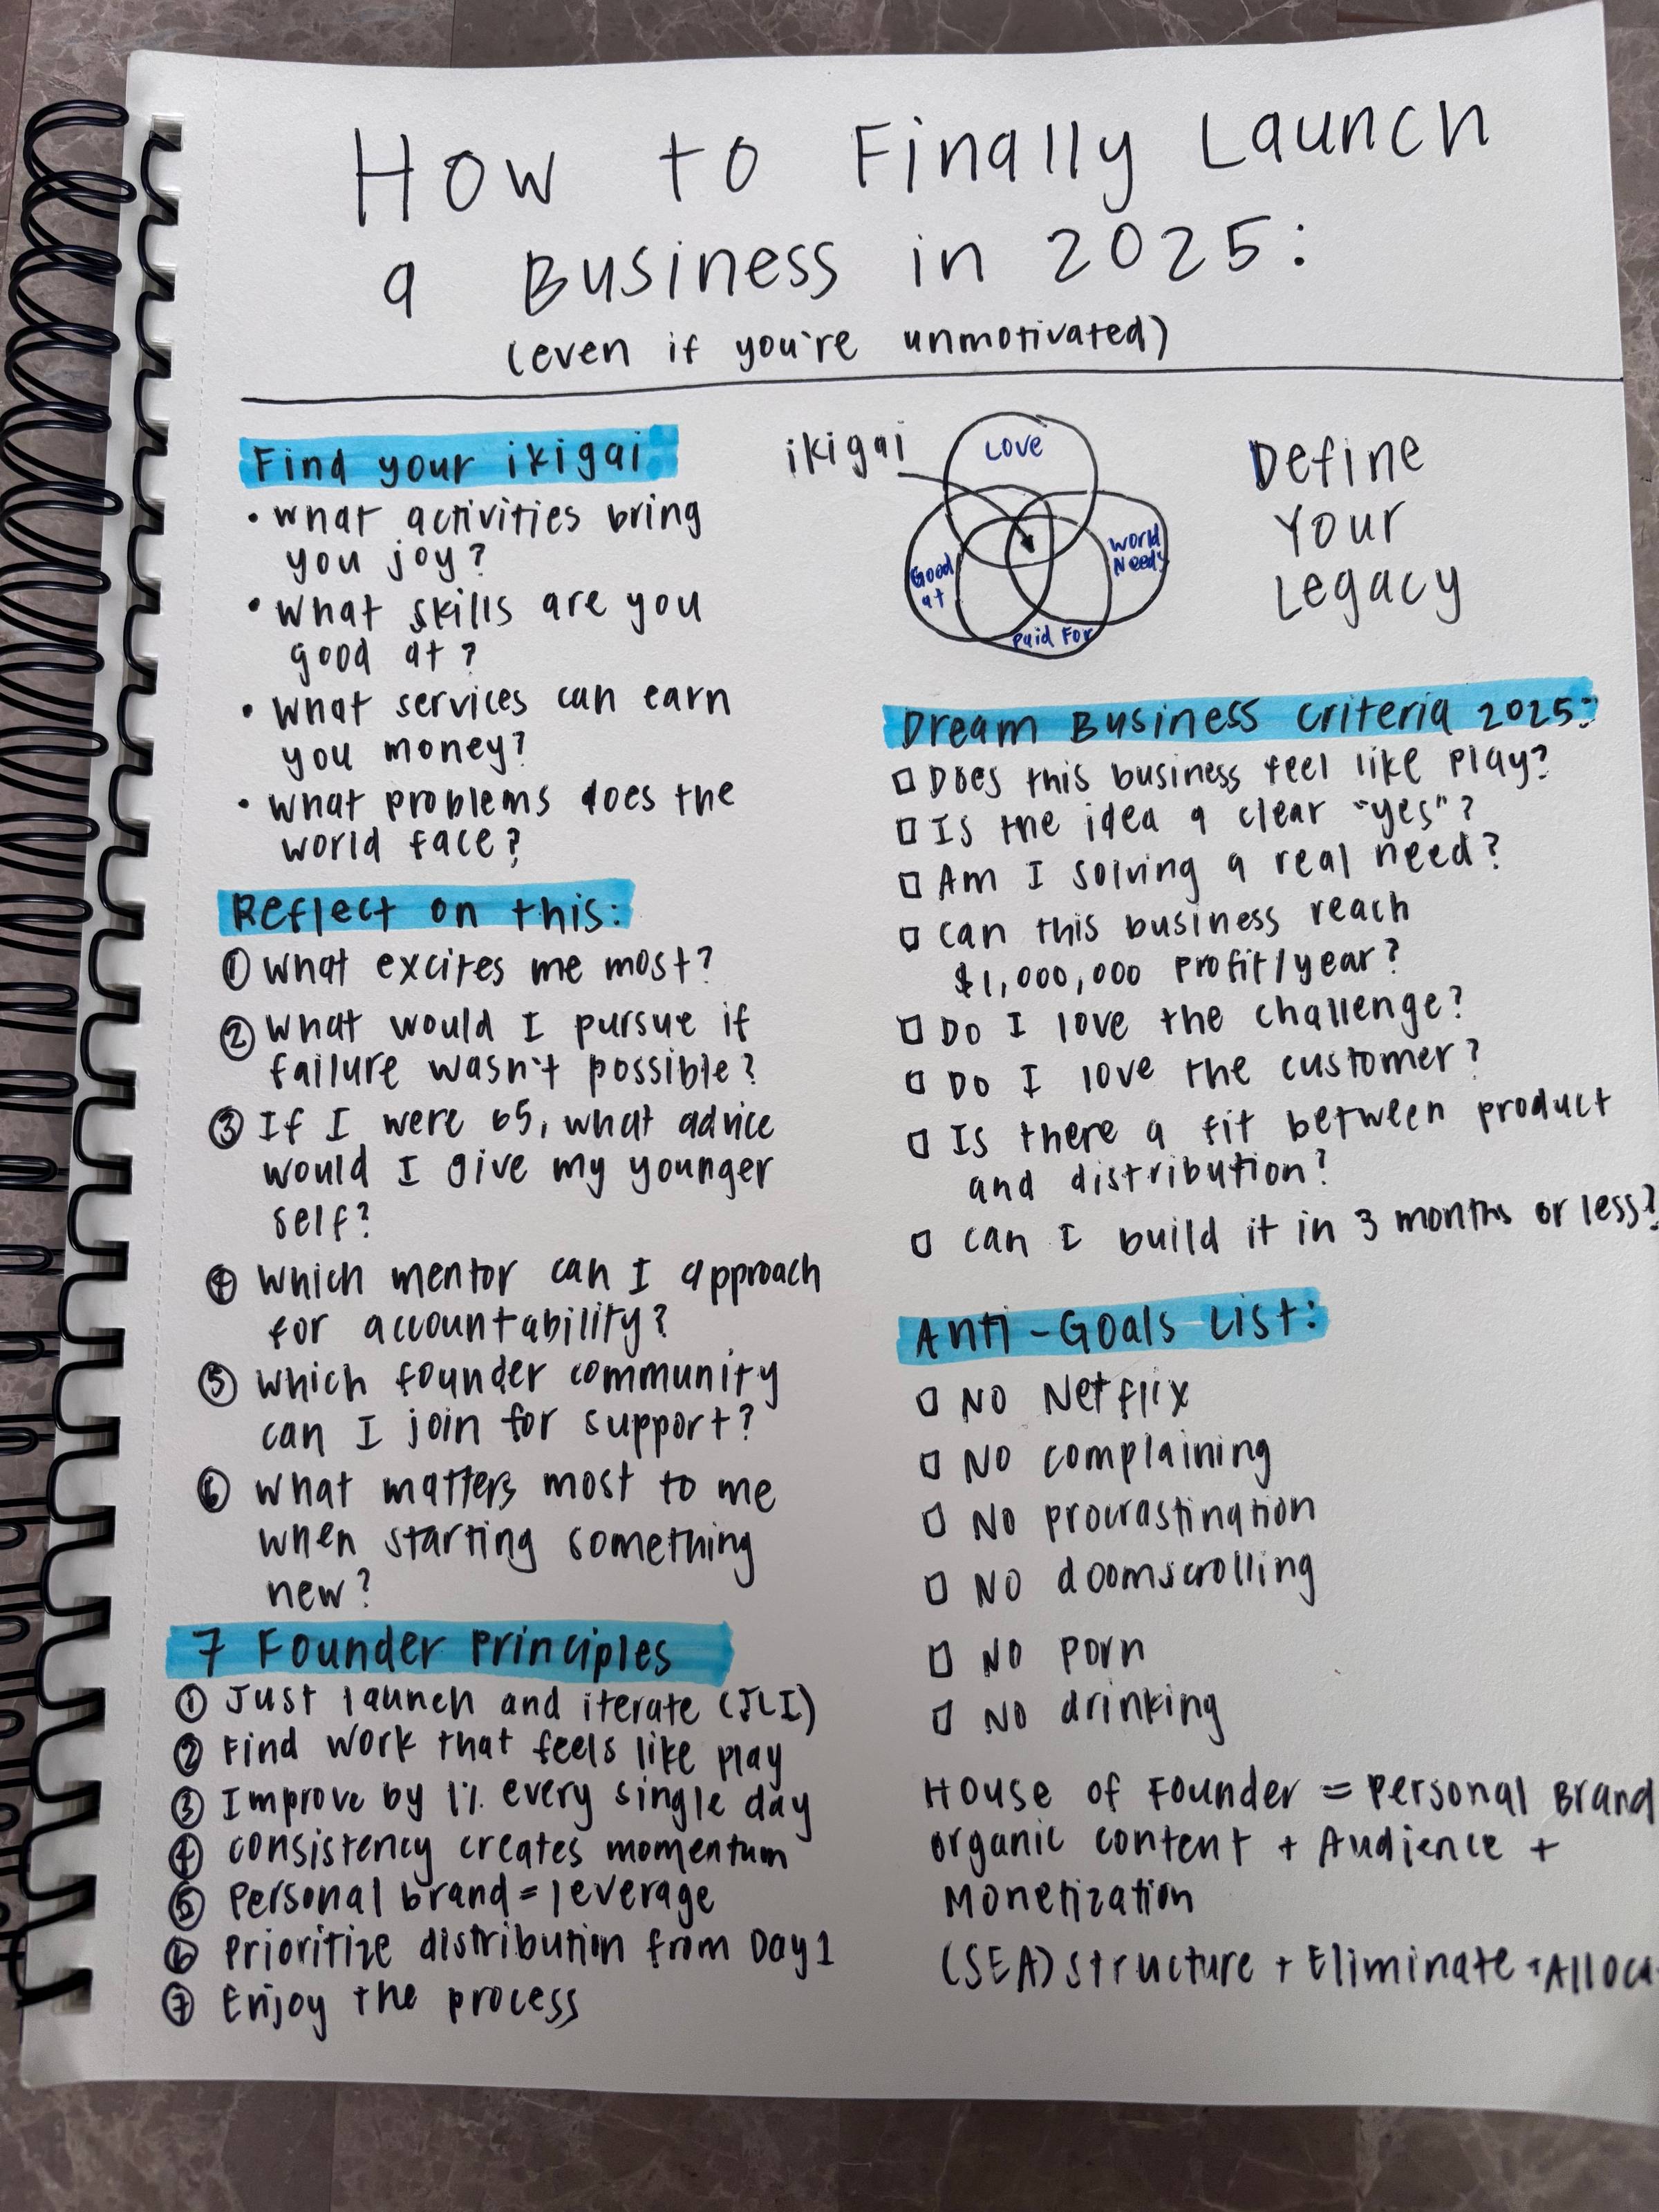 How to Finally Launch
a Business in 2025:
(even if you're unmotivated)
Find your ikigai:
• What activities bring
you joy?
• What skills are you
good at?
• What services can earn
you money?
• What problems does the
world face?
Reflect on this:
① What excites me most?
② What would I pursue if
failure wasn't possible?
③ If I were 65, what advice
would I give my younger
self?
④ Which mentor can I approach
for accountability?
⑤ Which founder community
can I join for support?
⑥ What matters most to me
when starting something
new?
7 Founder Principles
① Just launch and iterate (JLI)
② Find work that feels like play
③ Improve by 1% every single day
④ Consistency creates momentum
⑤ Personal brand = leverage
⑥ Prioritize distribution from Day 1
⑦ Enjoy the process
ikigai
Love
Good
at
World
Needs
Paid For
Define
Your
Legacy
Dream Business Criteria 2025:
□ Does this business feel like play?
□ Is the idea a clear "yes"?
□ Am I solving a real need?
□ Can this business reach
$1,000,000 profit/year?
□ Do I love the challenge?
□ Do I love the customer?
□ Is there a fit between product
and distribution?
□ Can I build it in 3 months or less?
Anti-Goals List:
□ No Netflix
□ No complaining
□ No procrastination
□ No doomscrolling
□ No porn
□ No drinking
House of Founder = Personal Brand
organic content + Audience +
Monetization
(SEA) Structure + Eliminate +